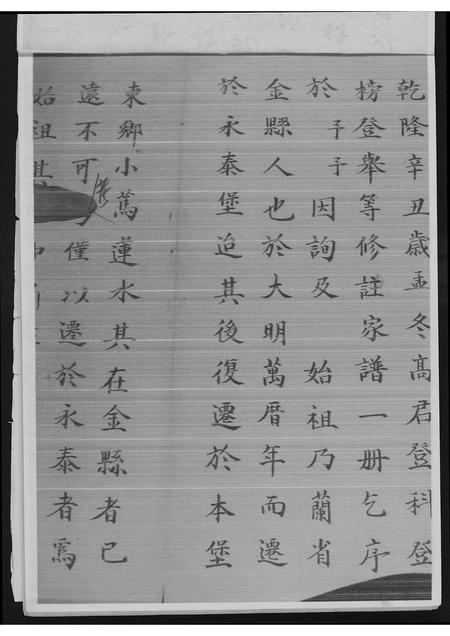 乾隆辛丑歲孟冬髙君登科登
榜登舉等修註家譜一册乞序
於予予因詢及始祖乃蘭省
金縣人也於大明萬暦年而遷
於永泰堡迨其後復遷於本堡
東鄉小蔦蓮水其在金縣者已
遠不可僅以遷於永泰者爲
始祖其